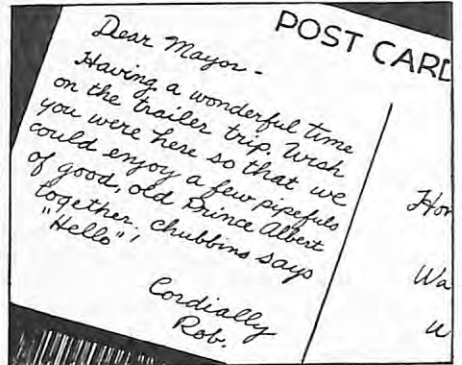 POST CARD
Dear Mayor -
Having a wonderful time
on the trailer trip. Wish
you were here so that we
could enjoy a few pipefuls
of good, old Prince Albert
together. Chubbins says
"Hello"!
Cordially
Rob.
Hon
Wa